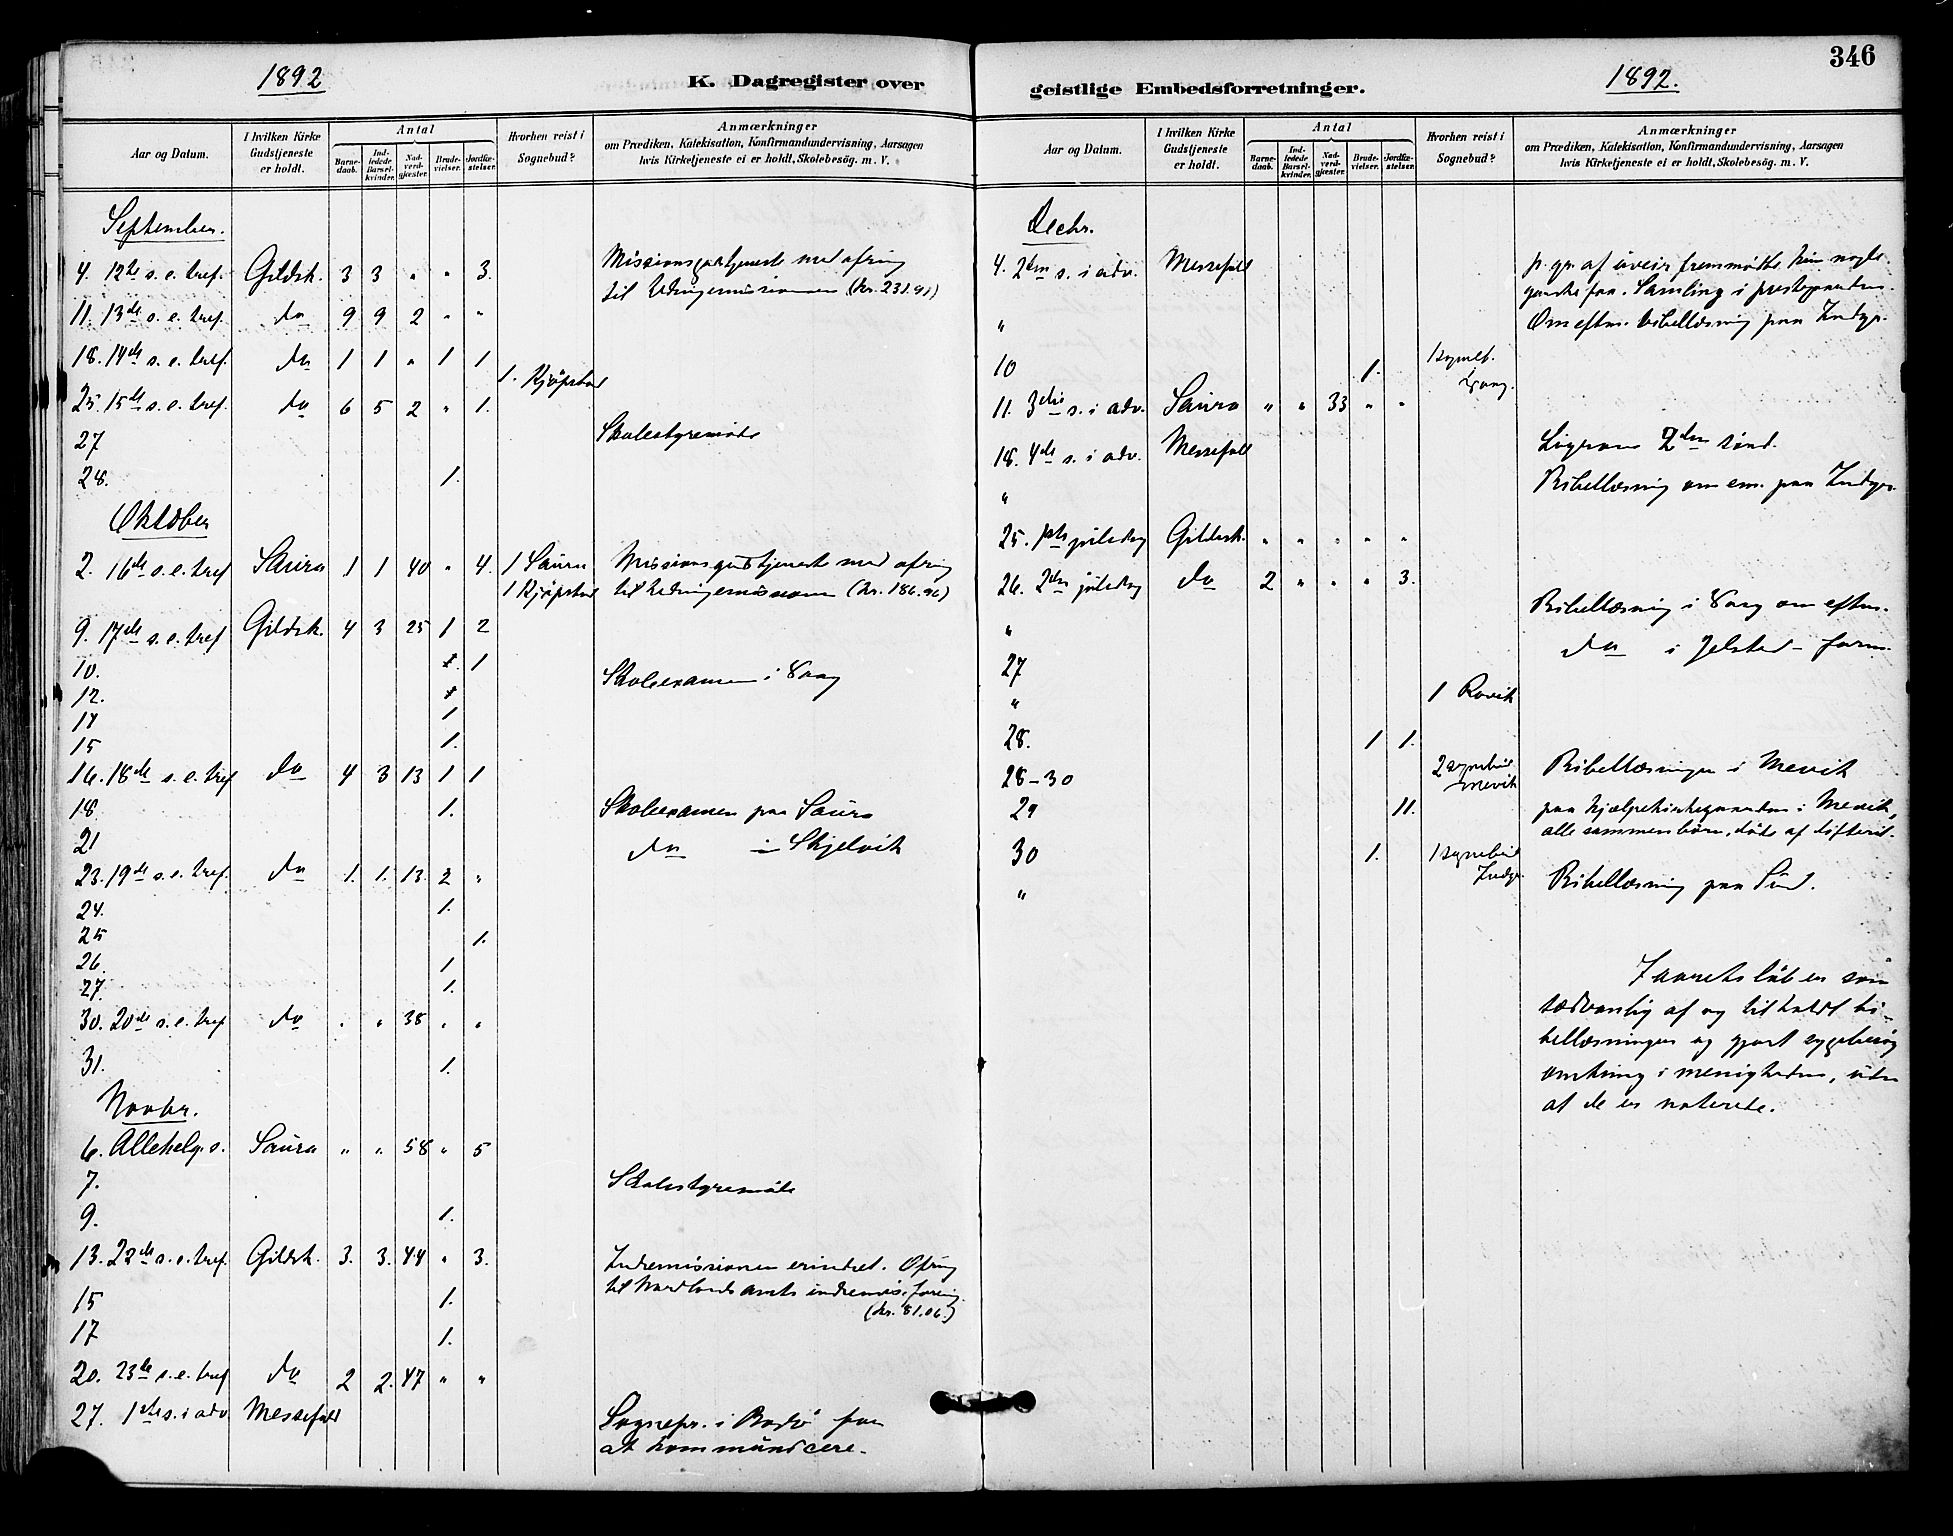 1892
K. Dagregister over
Aar og Datum.
I hvilken Kirke Gudstjeneste er holdt.
Antal
Barne-daab.
Ind-ledede Barsel-kvinder.
Nad-verd-gjæster.
Brude-vielser.
Jordfæ-stelser.
Hvorhen reist i Sognebud?
Anmærkninger
om Prædiken, Katekisation, Konfirmandundervisning, Aarsagen
hvis Kirketjeneste ei er holdt, Skolebesøg. m. V.
September.
4. 12te s. e. tref. Gildsk. 3 3 " " 3. Missionsgudstjeneste med ofring
til Hedningemissionen (kr. 231.91)
11. 13de s. e. tref. do 9 9 2 " "
18. 14de s. e. tref. do 1 1 " 1 1
1. Kjøpstad
25. 15de s. e. tref. do 6 5 2 " 1.
27 Skolestyremøte
28. 1.
Oktober
2. 16de s. e. tref Saura 1 1 40 " 4. 1 Saura Missionsgudstjeneste med ofring
1 Kjøpstad til hedningemissionen (kr. 186.96)
9. 17de s. e. tref Gildsk. 4 3 25 1 2
10. 1
12. Skoleexamen i Vaag
14 1.
15 1.
16. 18de s. e. tref do 4 3 13 1 1
18. 1. Skoleexamen paa Saura
21 do i Skjelvik
23. 19de s. e. tref. do 1. 1. 13. 2 "
24. 1.
25 1.
26. 1.
27. 1.
30. 20de s. e. tref do " " 38 " "
31. 1.
Novbr.
6. Allehelg. s. Saura " " 58 " 5
7. Skolestyremøte
9. 1.
13. 22de s. e. tref. Gildsk. 3. 3. 44 " 3. Indremissionen erindret. Ofring
til Nordlands amts indremis. forening.
(kr. 81.06.)
15 1.
17 1.
20. 23de s. e. tref do 2 2. 47 " "
27. 1ste s. i adv. Messefald Sognepr. i Bodø for
at kommunicere.
346
geistlige Embedsforretninger.
1892.
Aar og Datum.
I hvilken Kirke Gudstjeneste er holdt.
Antal
Barne-daab.
Ind-ledede Barsel-kvinder.
Nad-verd-gjæster.
Brude-vielser.
Jordfæ-stelser.
Hvorhen reist i Sognebud?
Anmærkninger
om Prædiken, Katekisation, Konfirmandundervisning, Aarsagen
hvis Kirketjeneste ei er holdt, Skolebesøg. m. V.
Decbr.
4. 2den s. i adv. Messefald p. gr. af uveir fremmøtte kun nogle
ganske faa. Samling i prestegaarden.
" Om eftm. bibellæsning paa Indyr.
10 1. 1 sogneb.
Vaag.
11. 3die s. i adv. Saura " " 33 " "
18. 4de s. i adv. Messefald Ligesom 2den sønd.
" Bibellæsning om em. paa Indyr.
25. 1ste juledag Gildesk. " " " " "
26. 2den juledag do 2 " " " 3.
" Bibellæsning i Vaag om eftm.
27 do i Jelstad - form.
" 1 Rovik
28. 1 1.
28-30 2 sognebud Mevik Bibellæsninger i Mevik
29 11. paa hjælpekirkegaarden i Mevik,
alle sammen børn, døde af difterit.
30 1. 1 sognebud Indyr.
" Bibellæsning paa Sund.
I aarets løb er som
sædvanlig af og til holdt bi-
bellæsninger og gjort sygebesøg
omkring i menigheden, uden
at de er noterede.